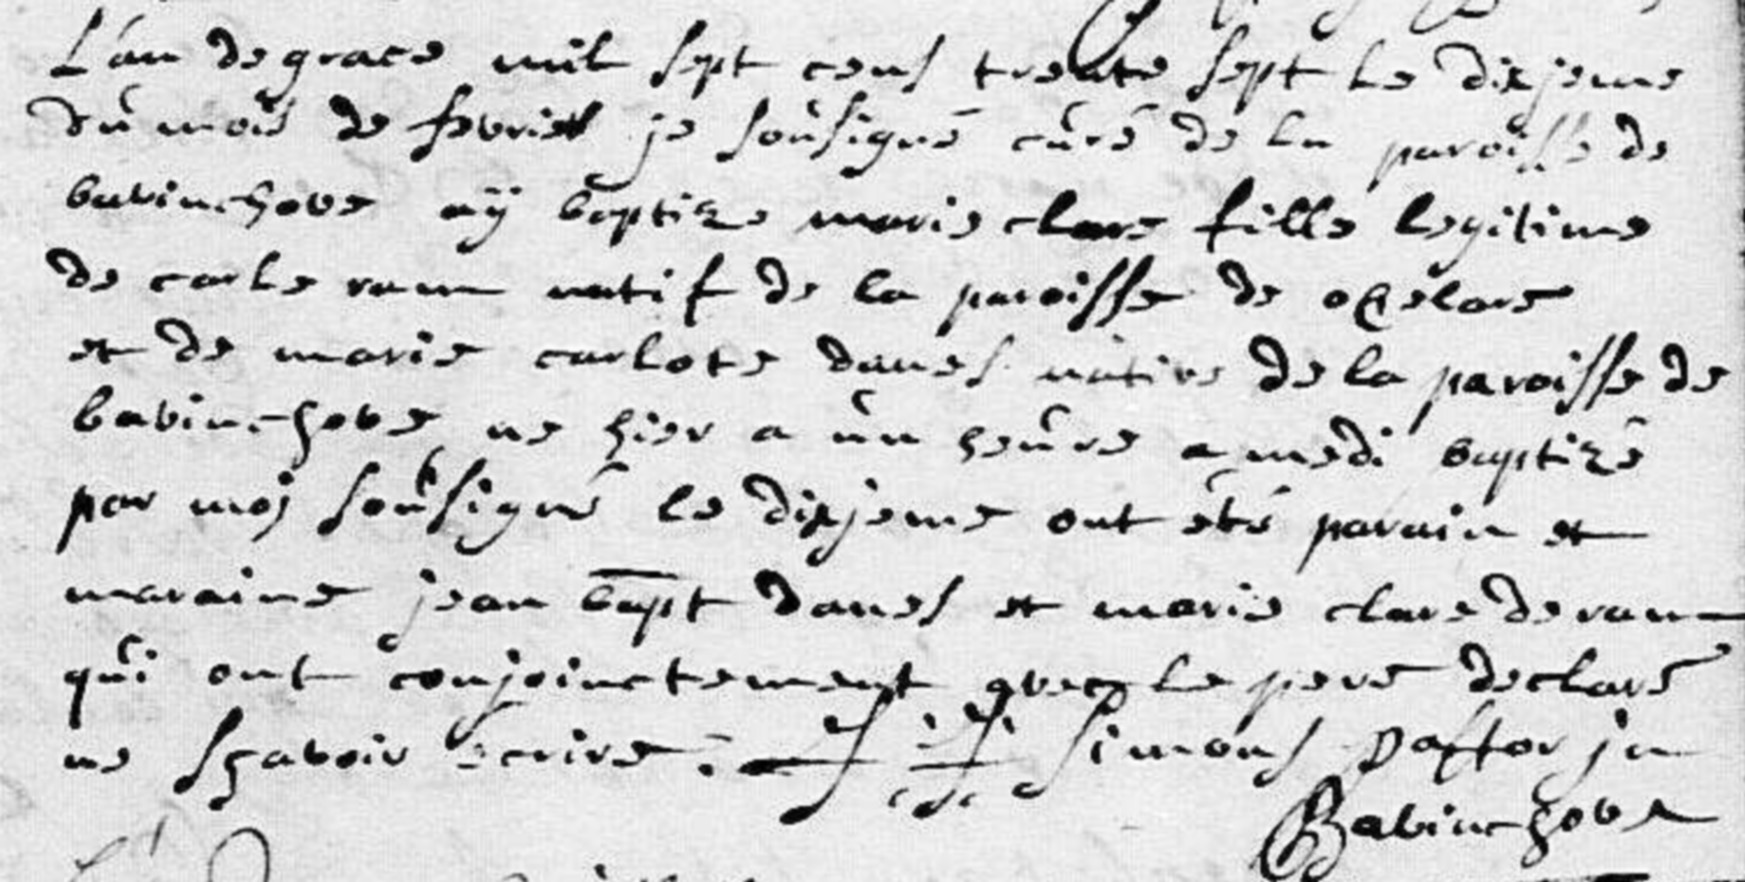 L'an de grace mil sept cens trente sept le dixjeme
dû mois de fevrier je soûsigné cûré de la paroisse de
bavinchove aÿ baptize marie clare fille legitime
de carle ram natif de la paroisse de ochelare
et de marie carlote danes native de la paroisse de
bavinchove ne hier a ûn heûre a medi baptizé
par moj soûsigné le dixjeme ont été parain et
maraine jean bapt danes et marie clare deram
qûi ont conjoinctement avecq le pere declaré
ne sçavoir ecrire. Simons Pastor jn
Bavinchove